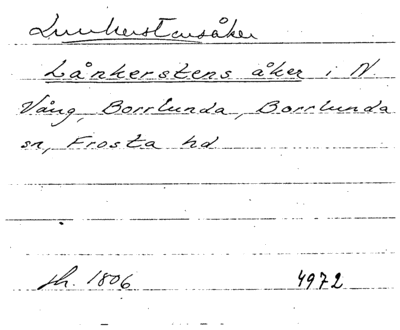 Lunkerstensåker
Lånkerstens åker i N.
Vång, Borrlunda, Borrlunda
sn, Frosta hd
sh. 1806 4972